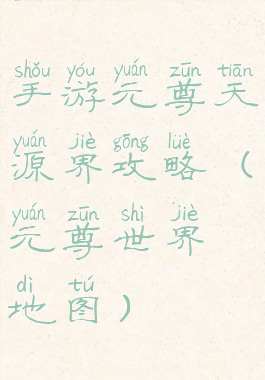 shǒu yóu yuán zūn tiān
手游元尊天
yuán jiè gōng lüè
源界攻略（
yuán zūn shì jiè
元尊世界
dì tú
地图）